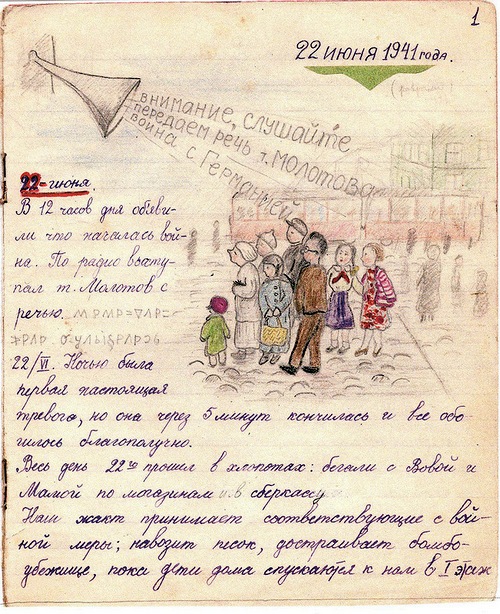 1
22 июня 1941 года.
внимание, слушайте
передаем речь т. Молотова
война с Германией
22-июня
В 12 часов дня объяви-
ли что началась вой-
на. По радио высту-
пал т. Молотов с
речью.
22/VI. Ночью была
первая настоящая
тревога, но она через 5 минут кончилась и все обо-
шлось благополучно.
Весь день 22го прошел в хлопотах: бегали с Вовой и
Мамой по магазинам и в сберкассу
Наш жакт принимает соответствующие с вой-
ной меры; навозит песок, достраивает бомбо-
убежище, пока дети дома спускаются к нам в I этаж